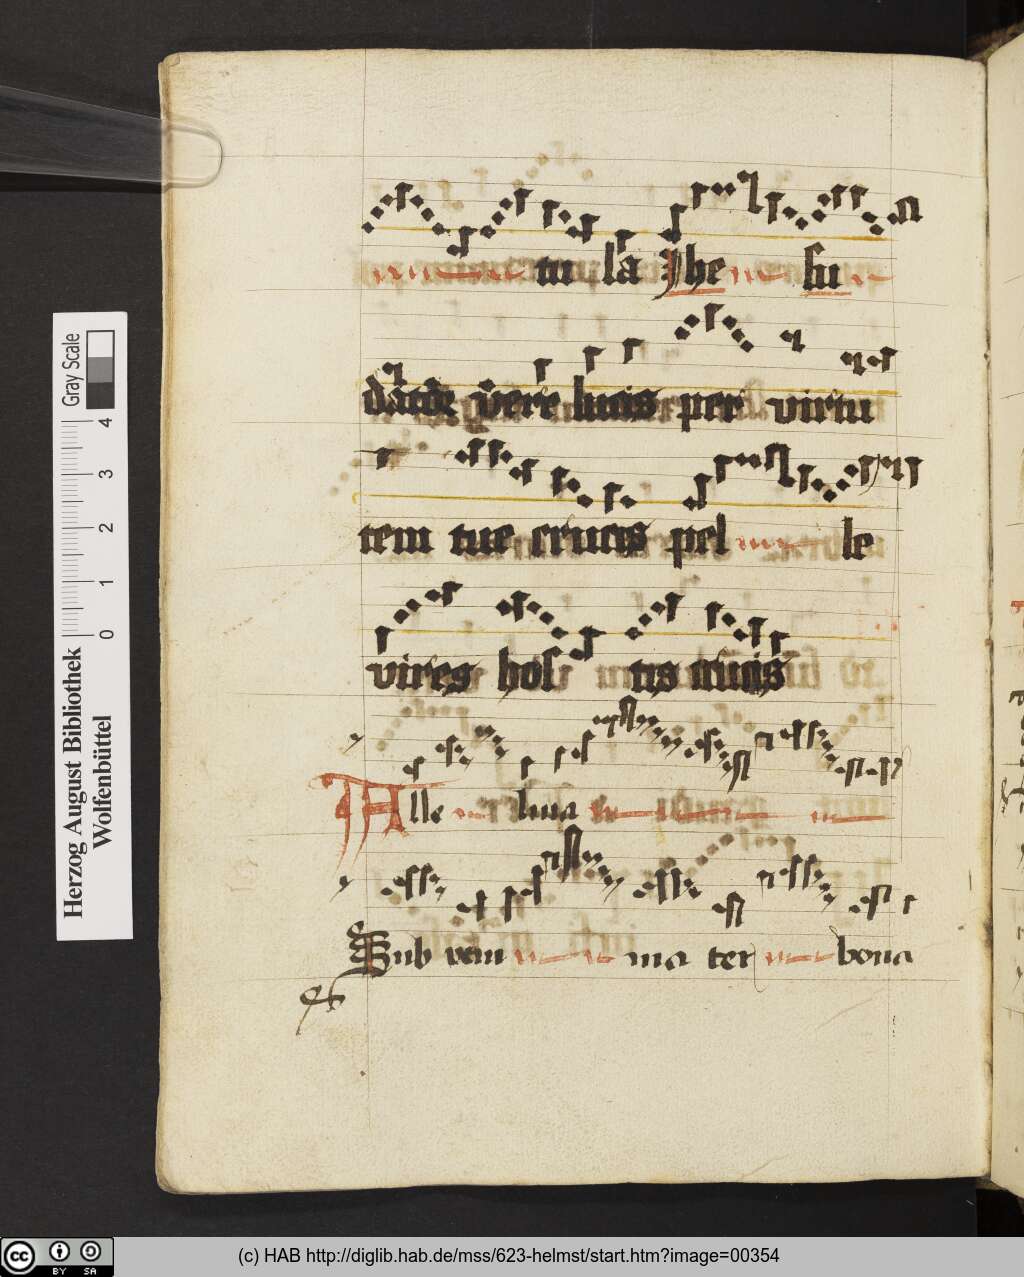 tu la Jhesu
dator vere lucis per virtu
tem tue crucis pelle
vires hostis
Alleluia
Sub veni mater bona
Herzog August Bibliothek
Wolfenbüttel
Gray Scale
0 1 2 3 4
cc BY SA
(c) HAB http://diglib.hab.de/mss/623-helmst/start.htm?image=00354